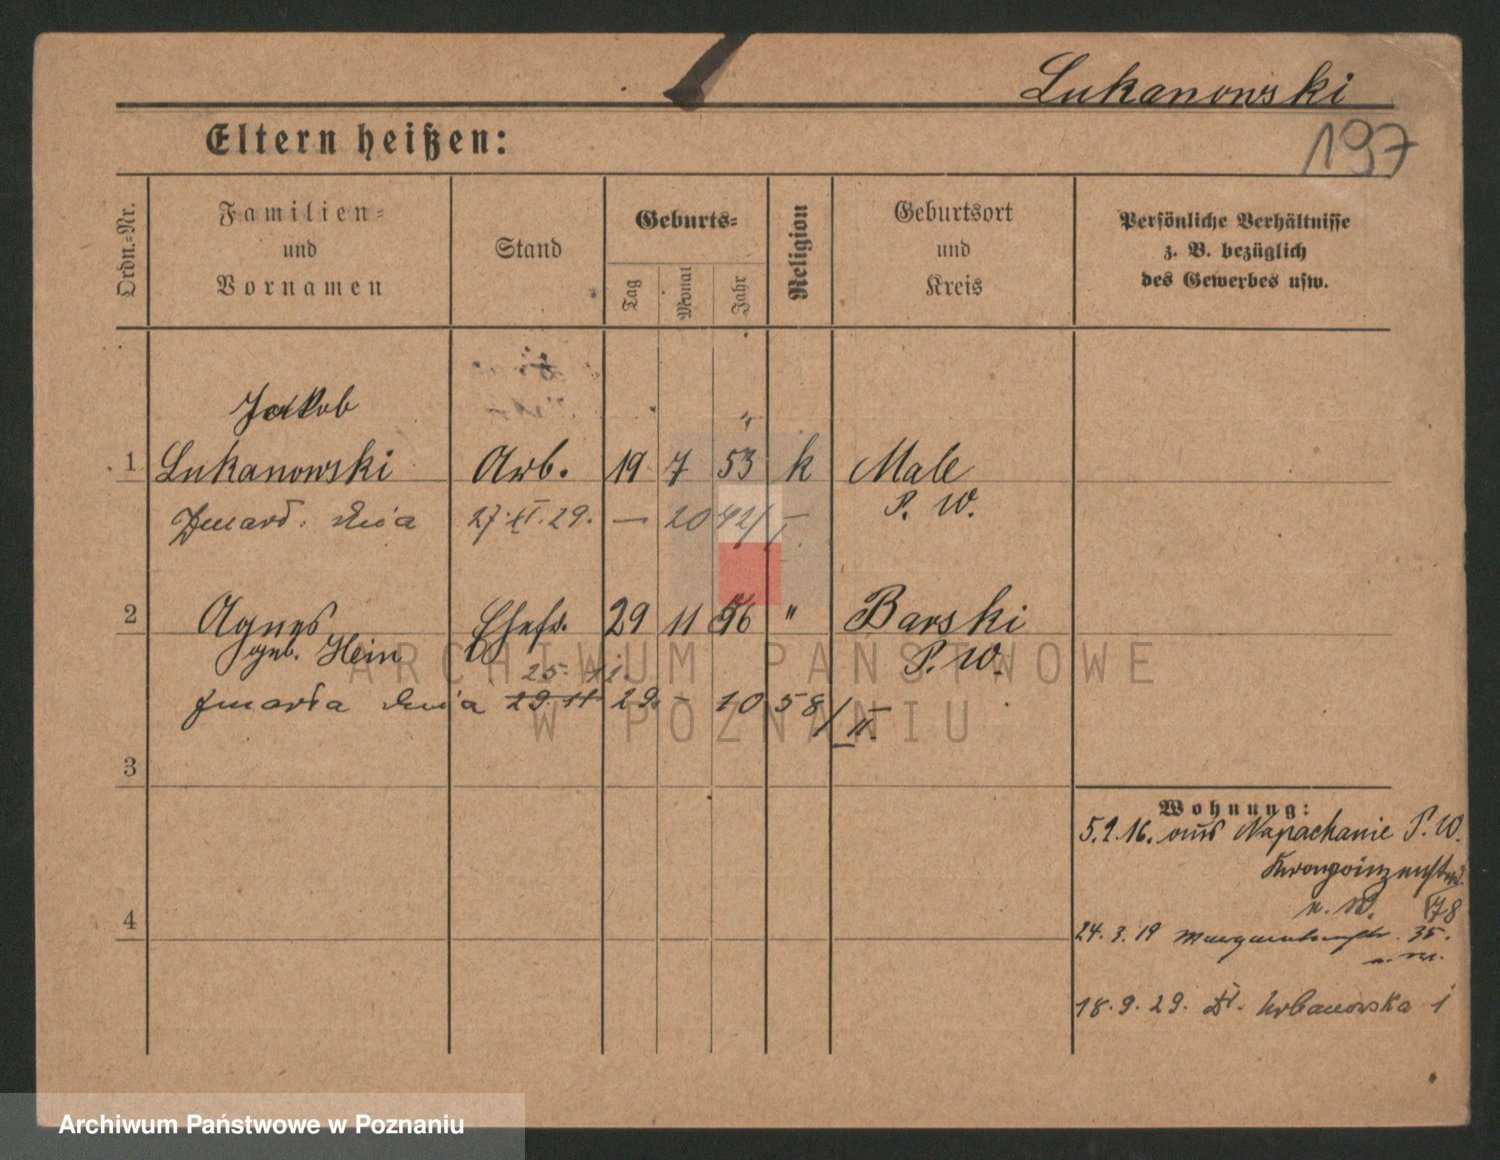 Lukanowski
197
Eltern heißen:
Ordn.-Nr.
Familien-
und
Vornamen
Stand
Geburts-
Tag
Monat
Jahr
Religion
Geburtsort
und
Kreis
Persönliche Verhältnisse
z. B. bezüglich
des Gewerbes usw.
Jakob
1 Lukanowski Arb. 19 7 53 k Male
P. W.
Zmarł. dnia 27. XI. 29. — 2042/I
2 Agnes Ehefr. 29 11 " Barski
geb. Hein P. W.
25. 11.
zmarła dnia 29 11 29. - 1058/II.
3
Wohnung:
5.2.16. aus Napachanie P. W.
Kronprinzenstr.
78
4
24. 3. 19 35.
18. 9. 29. Urbanowska 1
ARCHIWUM PAŃSTWOWE
W POZNANIU
Archiwum Państwowe w Poznaniu